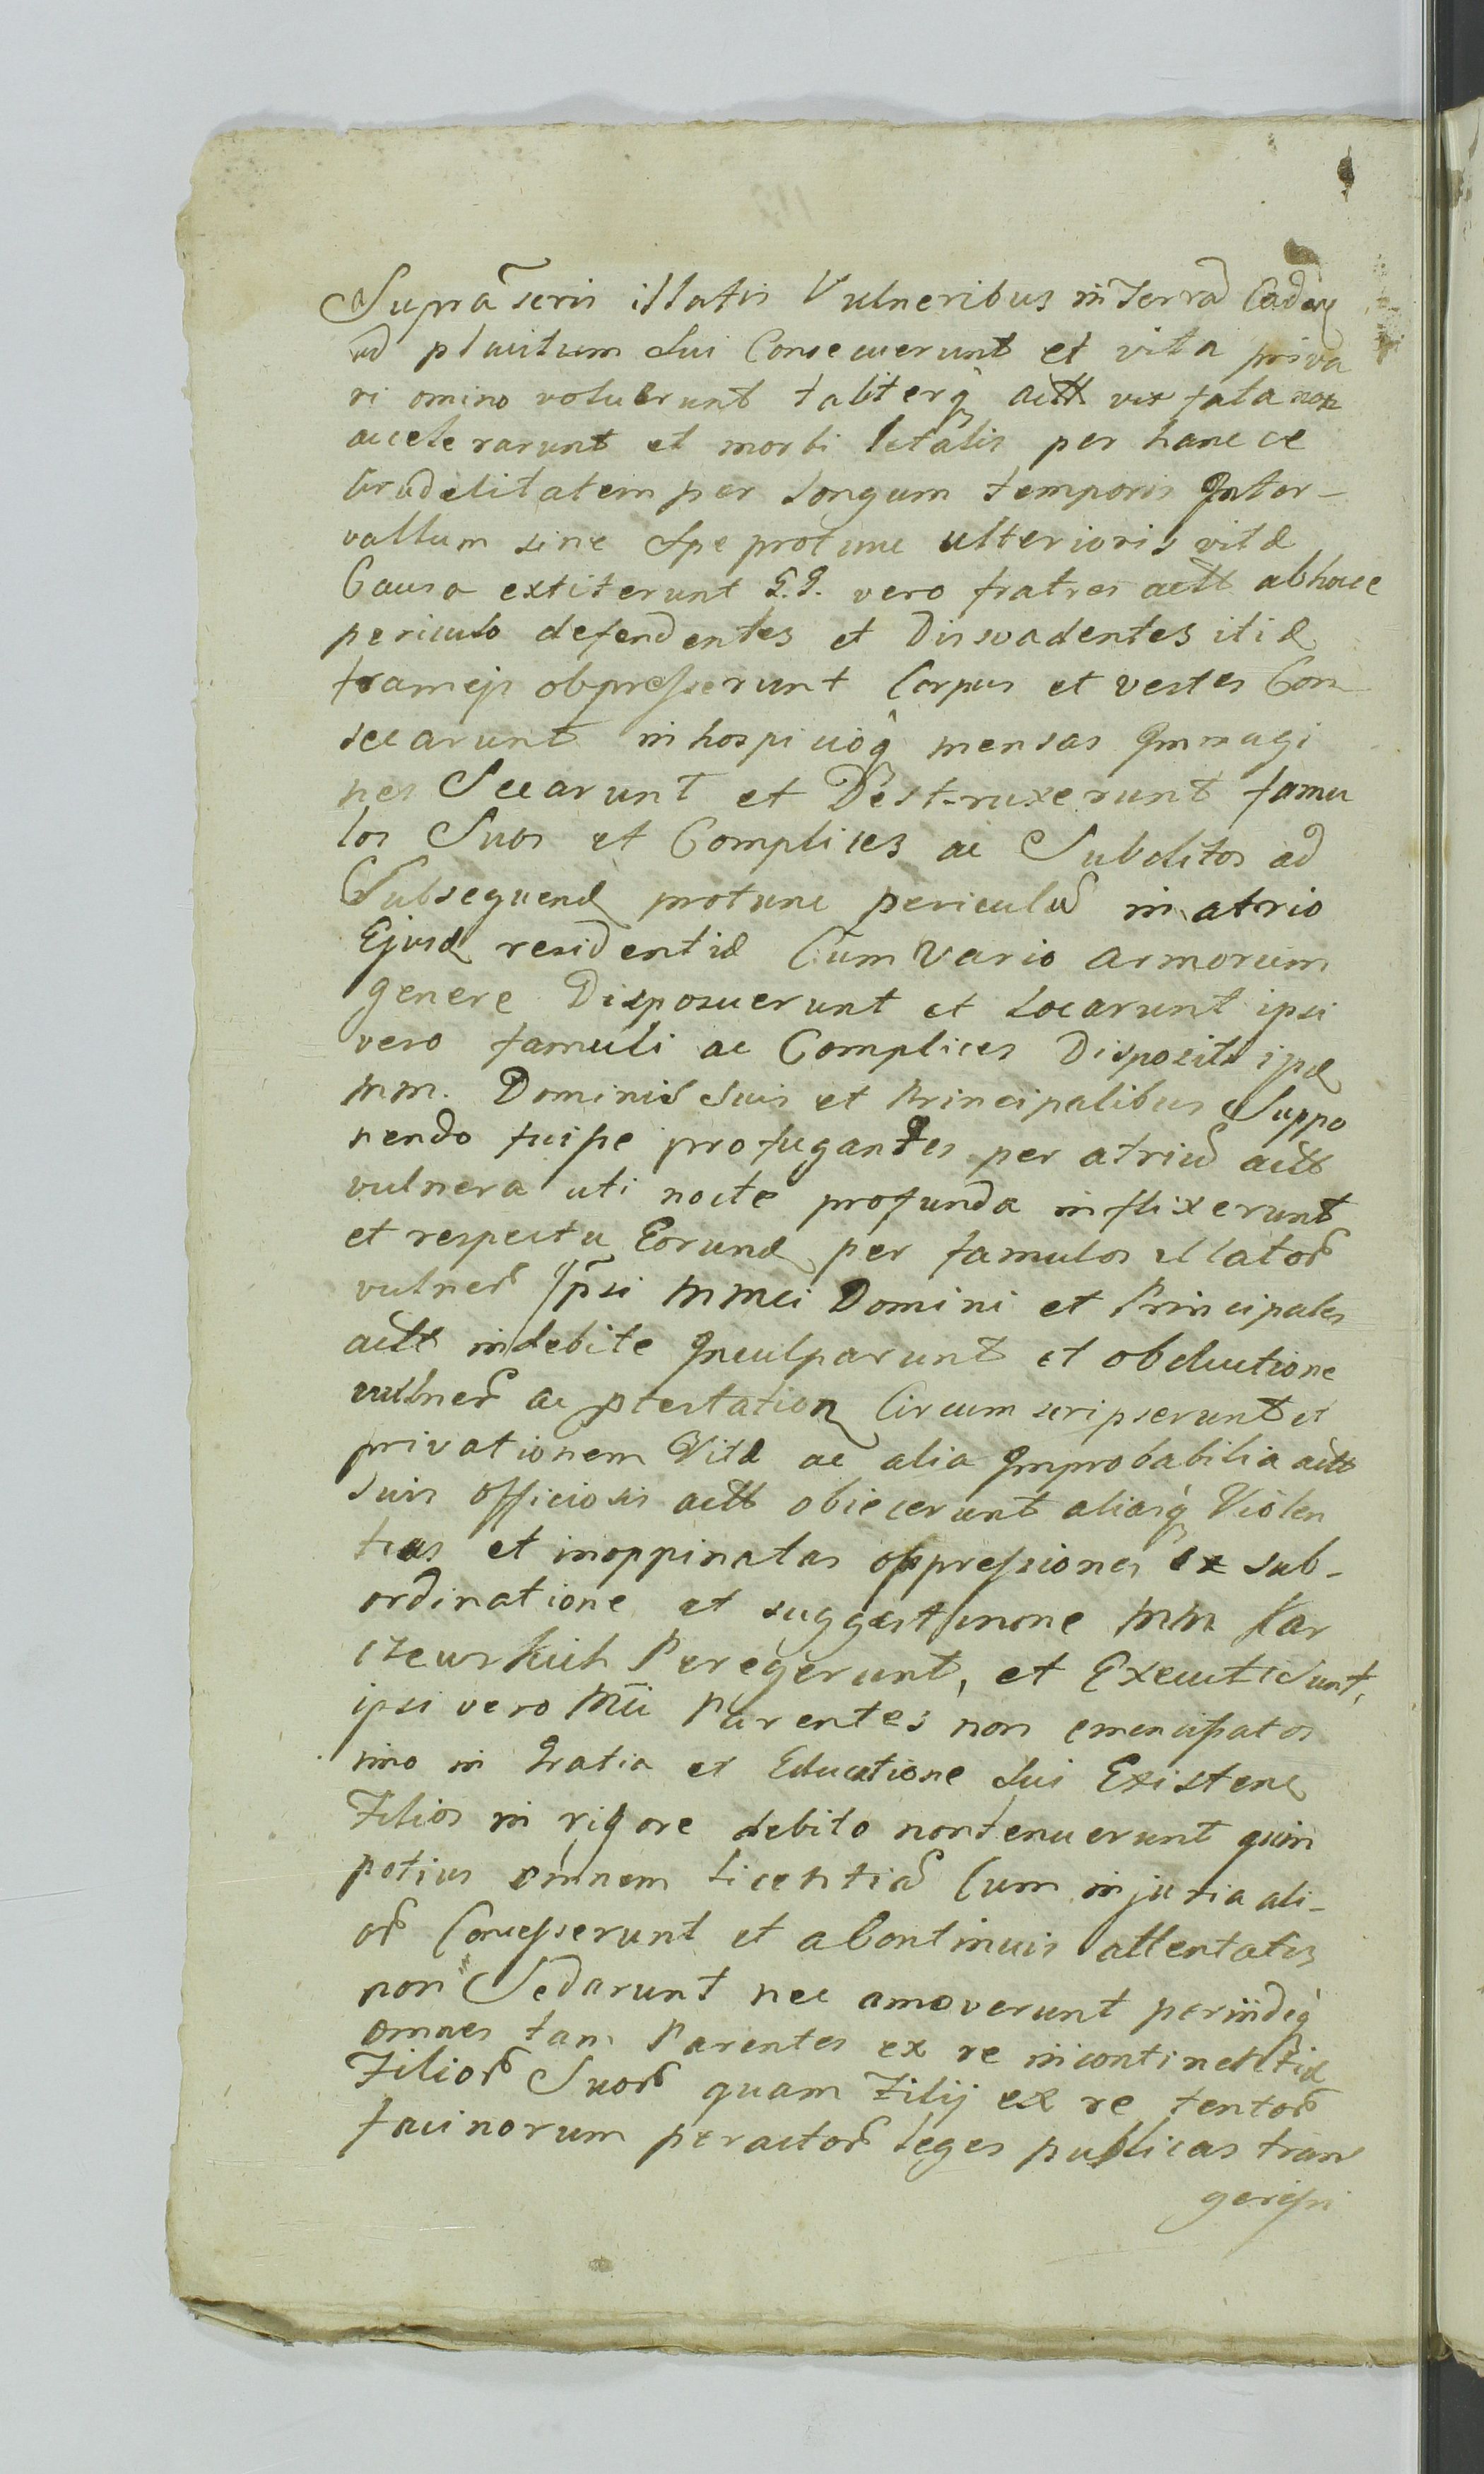 Suprascris illatis Vulneribus in Terrã Caden
ad placitum sui Consecuerunt et vita priva
ri omino voluerunt taliterq̀ actt vix fata non
accelerarunt et morbi letalis per hance
Crudelitatem per longum temporis Inter-
vallum sine spe protunc ulterioris vitæ
Causa extiterunt G.G. vero fratres actt abhocce
periculo defendentes et Disvadentes itid
frameis obpresserunt Corpus et vestes Con
secarunt in hospicioq̀ mensas Immagi
nes Secarunt et Dest-ruxerunt famu
los Suos et Complices ac Subditos ad
Subsequend protunc periculũ in atrio
Ejusd residentiæ Cum Vario armorum
genere Disposuerunt et locarunt ipsi
vero famuli ac Complices Dispositi ipd
MM. Dominis suis et Principalibus Suppo
nendo fuisse profugantes per atriũ actt
vulnera uti nocte profunda inflixerunt
et respectu Eorund per famulos illatoꝝ
vulneꝝ Ipsi MMci Domini et Principales
actt indebite Inculparunt et obductione
vulneꝝ ac ptestation Circumscripserunt et
privationem Vitæ ac alia Improbabilia actt
suis officiosis actt obiecerunt aliasq̀ Violen
tias et inoppinatas oppressiones ex sub-
ordinatione et suggestinone MM Kar
czewskich Peregerunt, et Executi sunt,
ipsi vero Mci Parentes non emencipatos
imo in Gratia et Educatione sui Existen
Filios in rigore debito nontenuerunt quin
potius omnem licentiã Cum injuria ali-
oꝝ Concesserunt et a Continuis attentatis
non Sedarunt nec amoverunt periindeq̀
omnes tam Parentes ex re incontinentiæ
Filioꝝ Suoꝝ quam Filij ex re tentoꝝ
facinorum peractoꝝ leges publicas trans
geressi